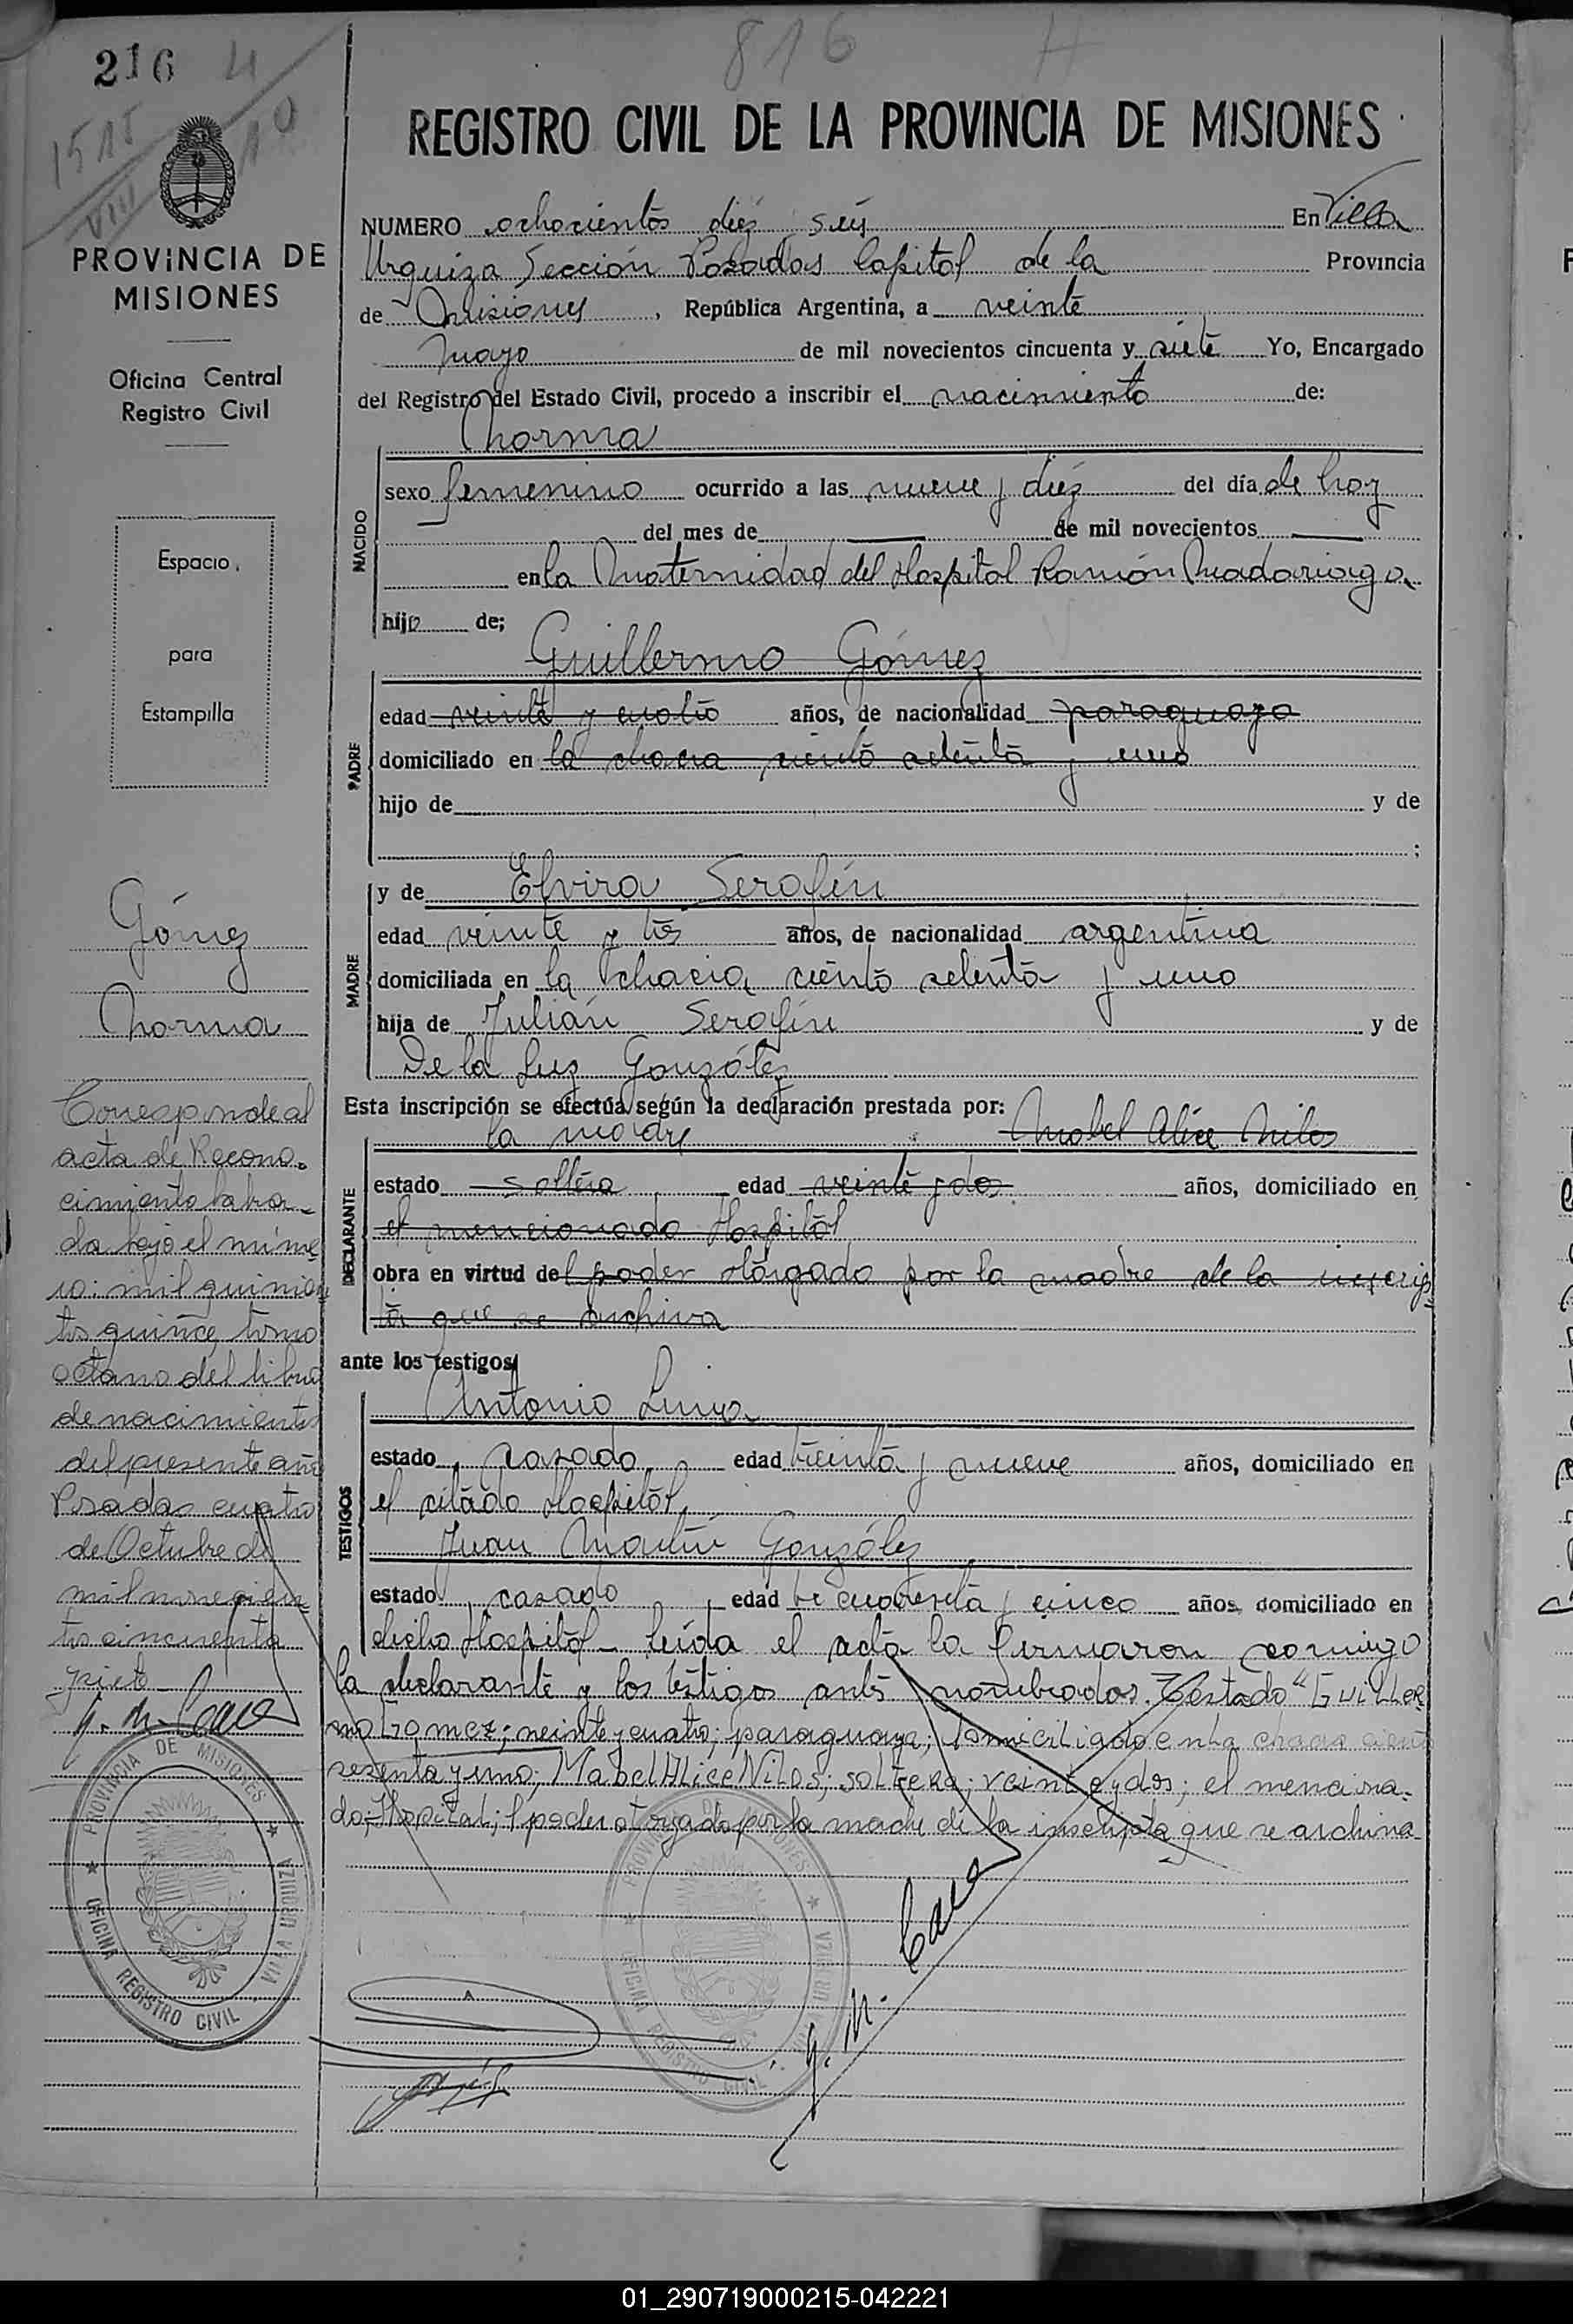 216 4
816 H
1515
VIII 10
REGISTRO CIVIL DE LA PROVINCIA DE MISIONES
PROVINCIA DE
MISIONES
Oficina Central
Registro Civil
Espacio
para
Estampilla
NUMERO ochocientos diez seis En Villa
Urquiza Sección Posadas Capital de la Provincia
de Misiones, República Argentina, a veinte
mayo de mil novecientos cincuenta y siete Yo, Encargado
del Registro del Estado Civil, procedo a inscribir el nacimiento de:
Norma
NACIDO
sexo femenino ocurrido a las nueve y diez del día de hoy
del mes de de mil novecientos
en la Maternidad del Hospital Ramón Madariaga
hija de;
Guillermo Gómez
PADRE
edad veinte y cuatro años, de nacionalidad paraguaya
domiciliado en la chacra ciento setenta y uno
hijo de y de
;
y de Elvira Serafín
MADRE
edad veinte y tres años, de nacionalidad argentina
domiciliada en la chacra ciento setenta y uno
hija de Julián Serafín y de
De la Luz González
Esta inscripción se efectúa según la declaración prestada por: Mabel Alice Nilos
la madre
DECLARANTE
estado soltera edad veinte y dos años, domiciliado en
el mencionado Hospital
obra en virtud del poder otorgado por la madre de la inscrip
ta que se archiva
ante los testigos
Antonio Luna
TESTIGOS
estado casado edad treinta y nueve años, domiciliado en
el citado Hospital
Juan Martín González
estado casado edad cuarenta y cinco años, domiciliado en
dicho Hospital leída el acta la firmaron conmigo
la declarante y los testigos antes nombrados. Testado "Guiller
mo Gomez; veinte y cuatro; paraguaya; domiciliado en la chacra ciento
setenta y uno; Mabel Alice Nilos; soltera; veinte y dos; el menciona-
do Hospital; l poder otorgado por la madre de la inscripta que se archiva
Gómez
Norma
Corresponde al
acta de Recono-
cimiento labra-
da bajo el núme
ro: mil quinien
tos quince, tomo
octavo del libro
de nacimientos
del presente año
Posadas cuatro
de Octubre de
mil novecien
tos cincuenta
siete
PROVINCIA DE MISIONES
VILLA URQUIZA
OFICINA REGISTRO CIVIL
01_290719000215-042221